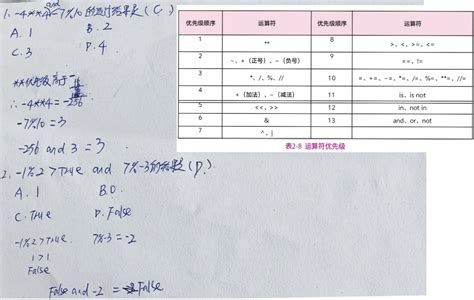 1. -4**4 and -7%10 的运行结果是 ( C )
A. 1 B. 2
C. 3 D. 4
**优先级高于-
∴ -4**4 = -256
-7%10 = 3
-256 and 3 = 3
2. -1%2 > True and 7%-3的结果是 ( D )
A. 1 B. 0
C. True D. False
-1%2 > True 7%-3 = -2
1 > 1
False
False and -2 = False
优先级顺序 运算符 优先级顺序 运算符
1 ** 8 >、<、>=、<=
2 ~、+（正号）、-（负号） 9 ==、!=
3 *、/、%、// 10 =、+=、-=、*=、/=、%=、**=、//=
4 +（加法）、-（减法） 11 is、is not
5 <<、>> 12 in、not in
6 & 13 and、or、not
7 ^、|
表2-8 运算符优先级